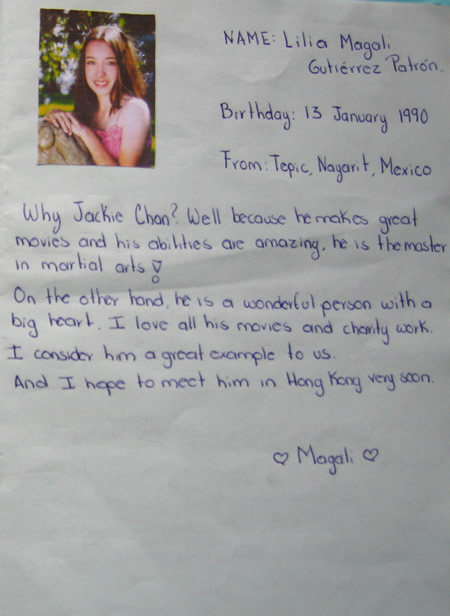 NAME: Lilia Magali
Gutiérrez Patrón.
Birthday: 13 January 1990
From: Tepic, Nayarit, Mexico
Why Jackie Chan? Well because he makes great
movies and his abilities are amazing, he is the master
in martial arts!
On the other hand, he is a wonderful person with a
big heart. I love all his movies and charity work.
I consider him a great example to us.
And I hope to meet him in Hong Kong very soon.
♡ Magali ♡